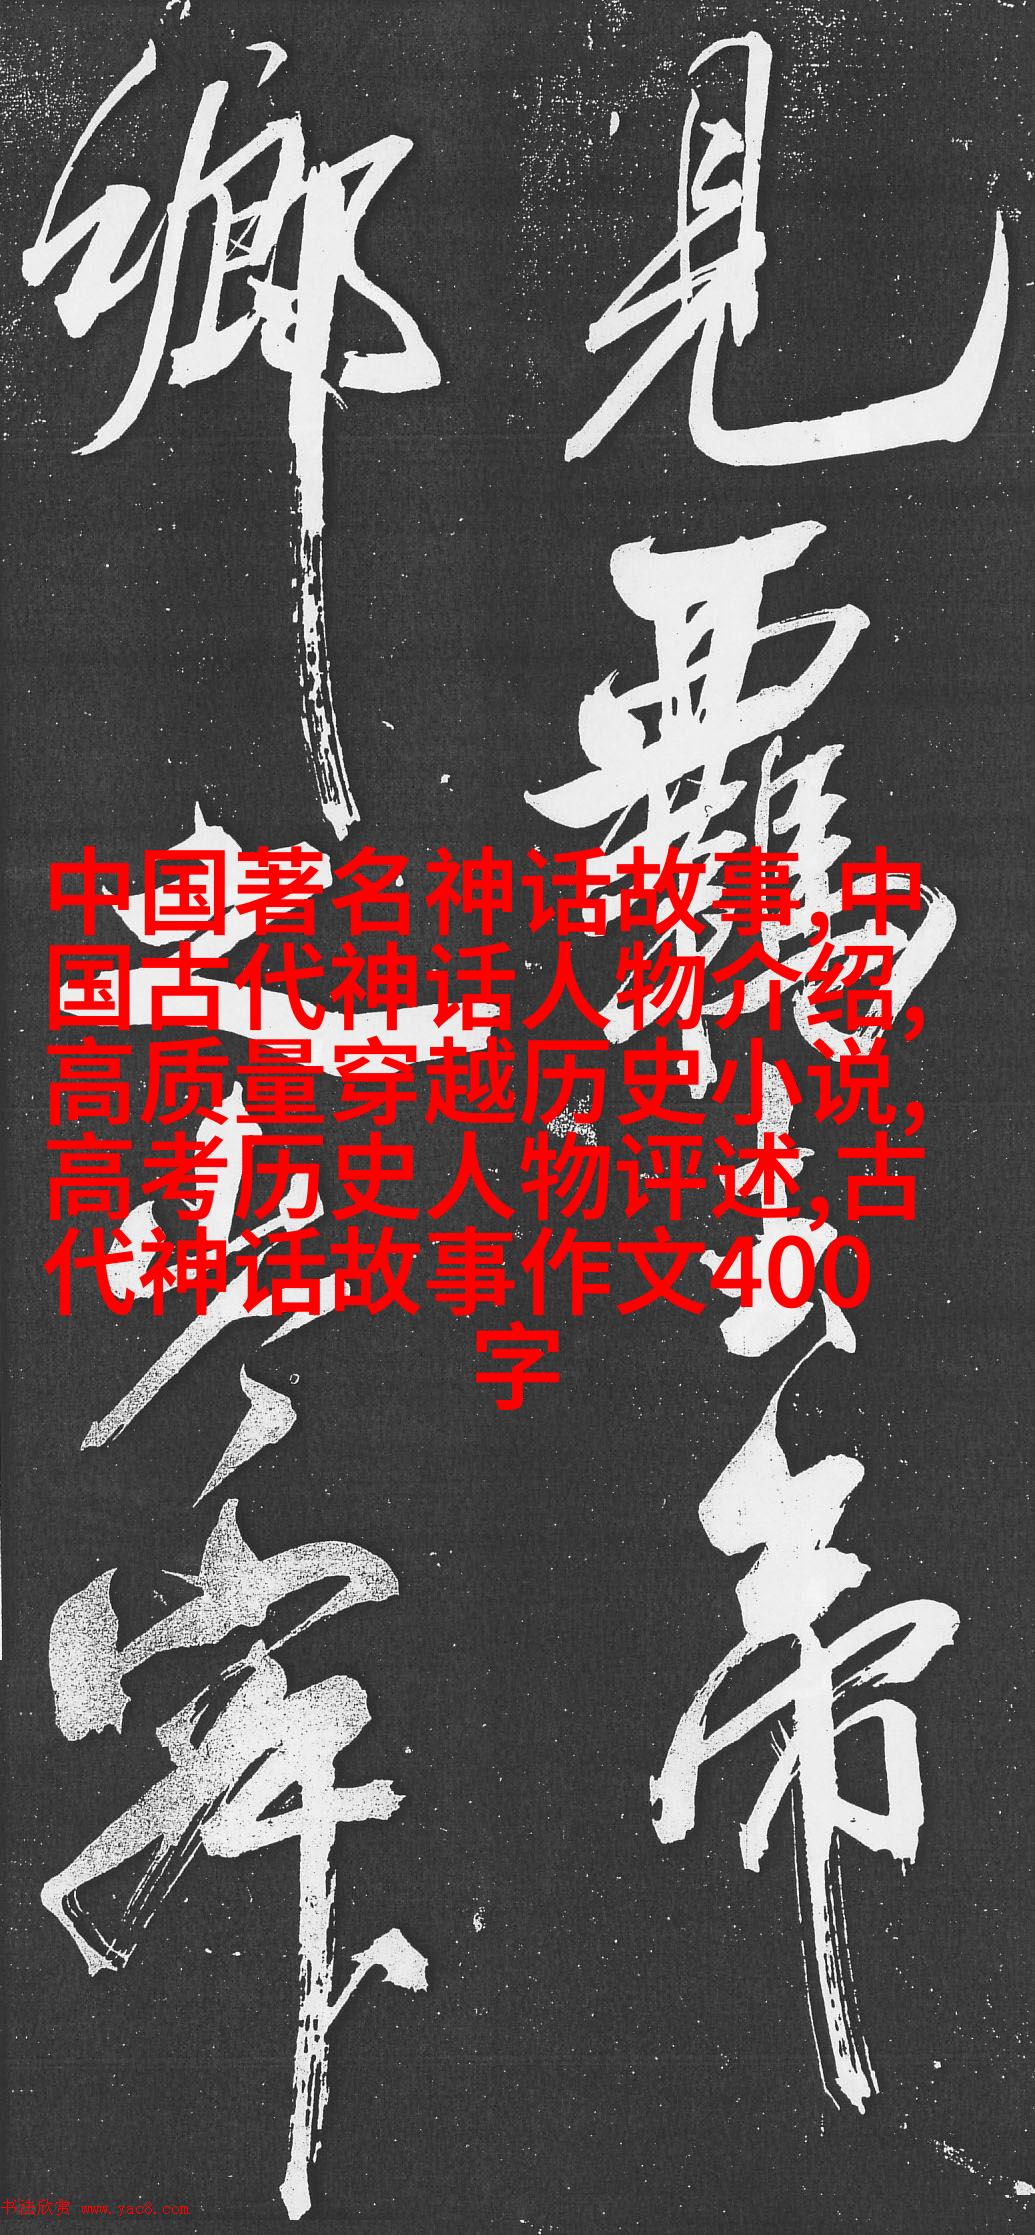 中国著名神话故事,中
国古代神话人物介绍,
高质量穿越历史小说,
高考历史人物评述,古
代神话故事作文400
字
見羈帝
鄉之
书法欣赏 www.yac8.com